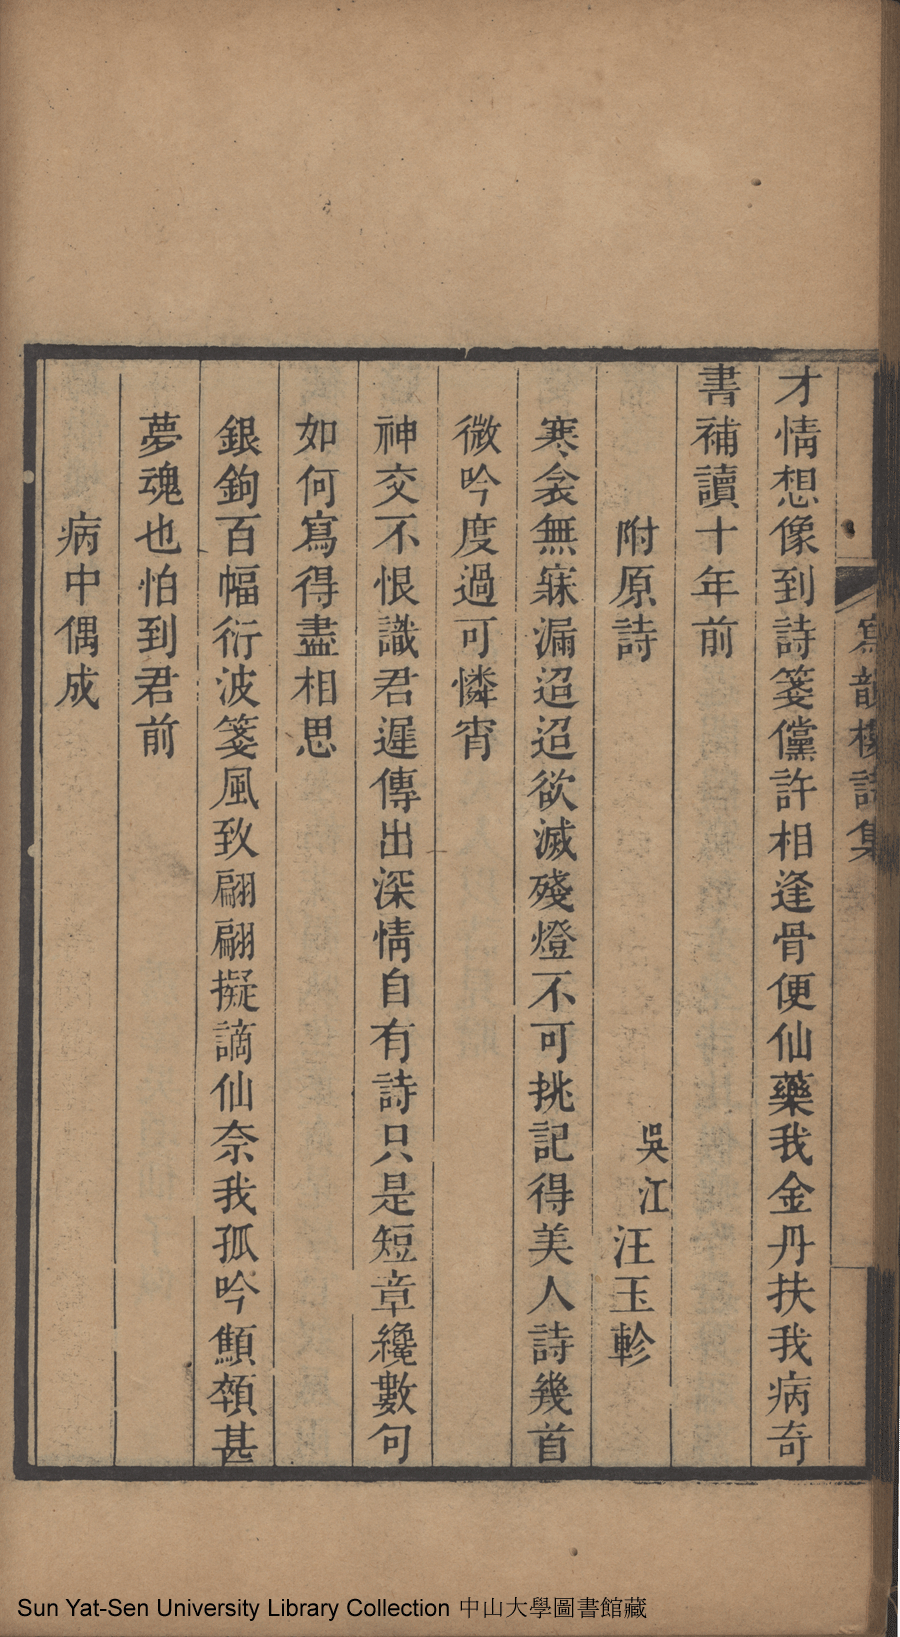 寫韻樓詩集
才情想像到詩箋儻許相逢骨便仙藥我金丹扶我病奇
書補讀十年前
附原詩
吳江汪玉軫
寒衾無寐漏迢迢欲滅殘燈不可挑記得美人詩幾首
微吟度過可憐宵
神交不恨識君遲傳出深情自有詩只是短章纔數句
如何寫得盡相思
銀鉤百幅衍波箋風致翩翩擬謫仙奈我孤吟顦顇甚
夢魂也怕到君前
病中偶成
Sun Yat-Sen University Library Collection 中山大學圖書館藏